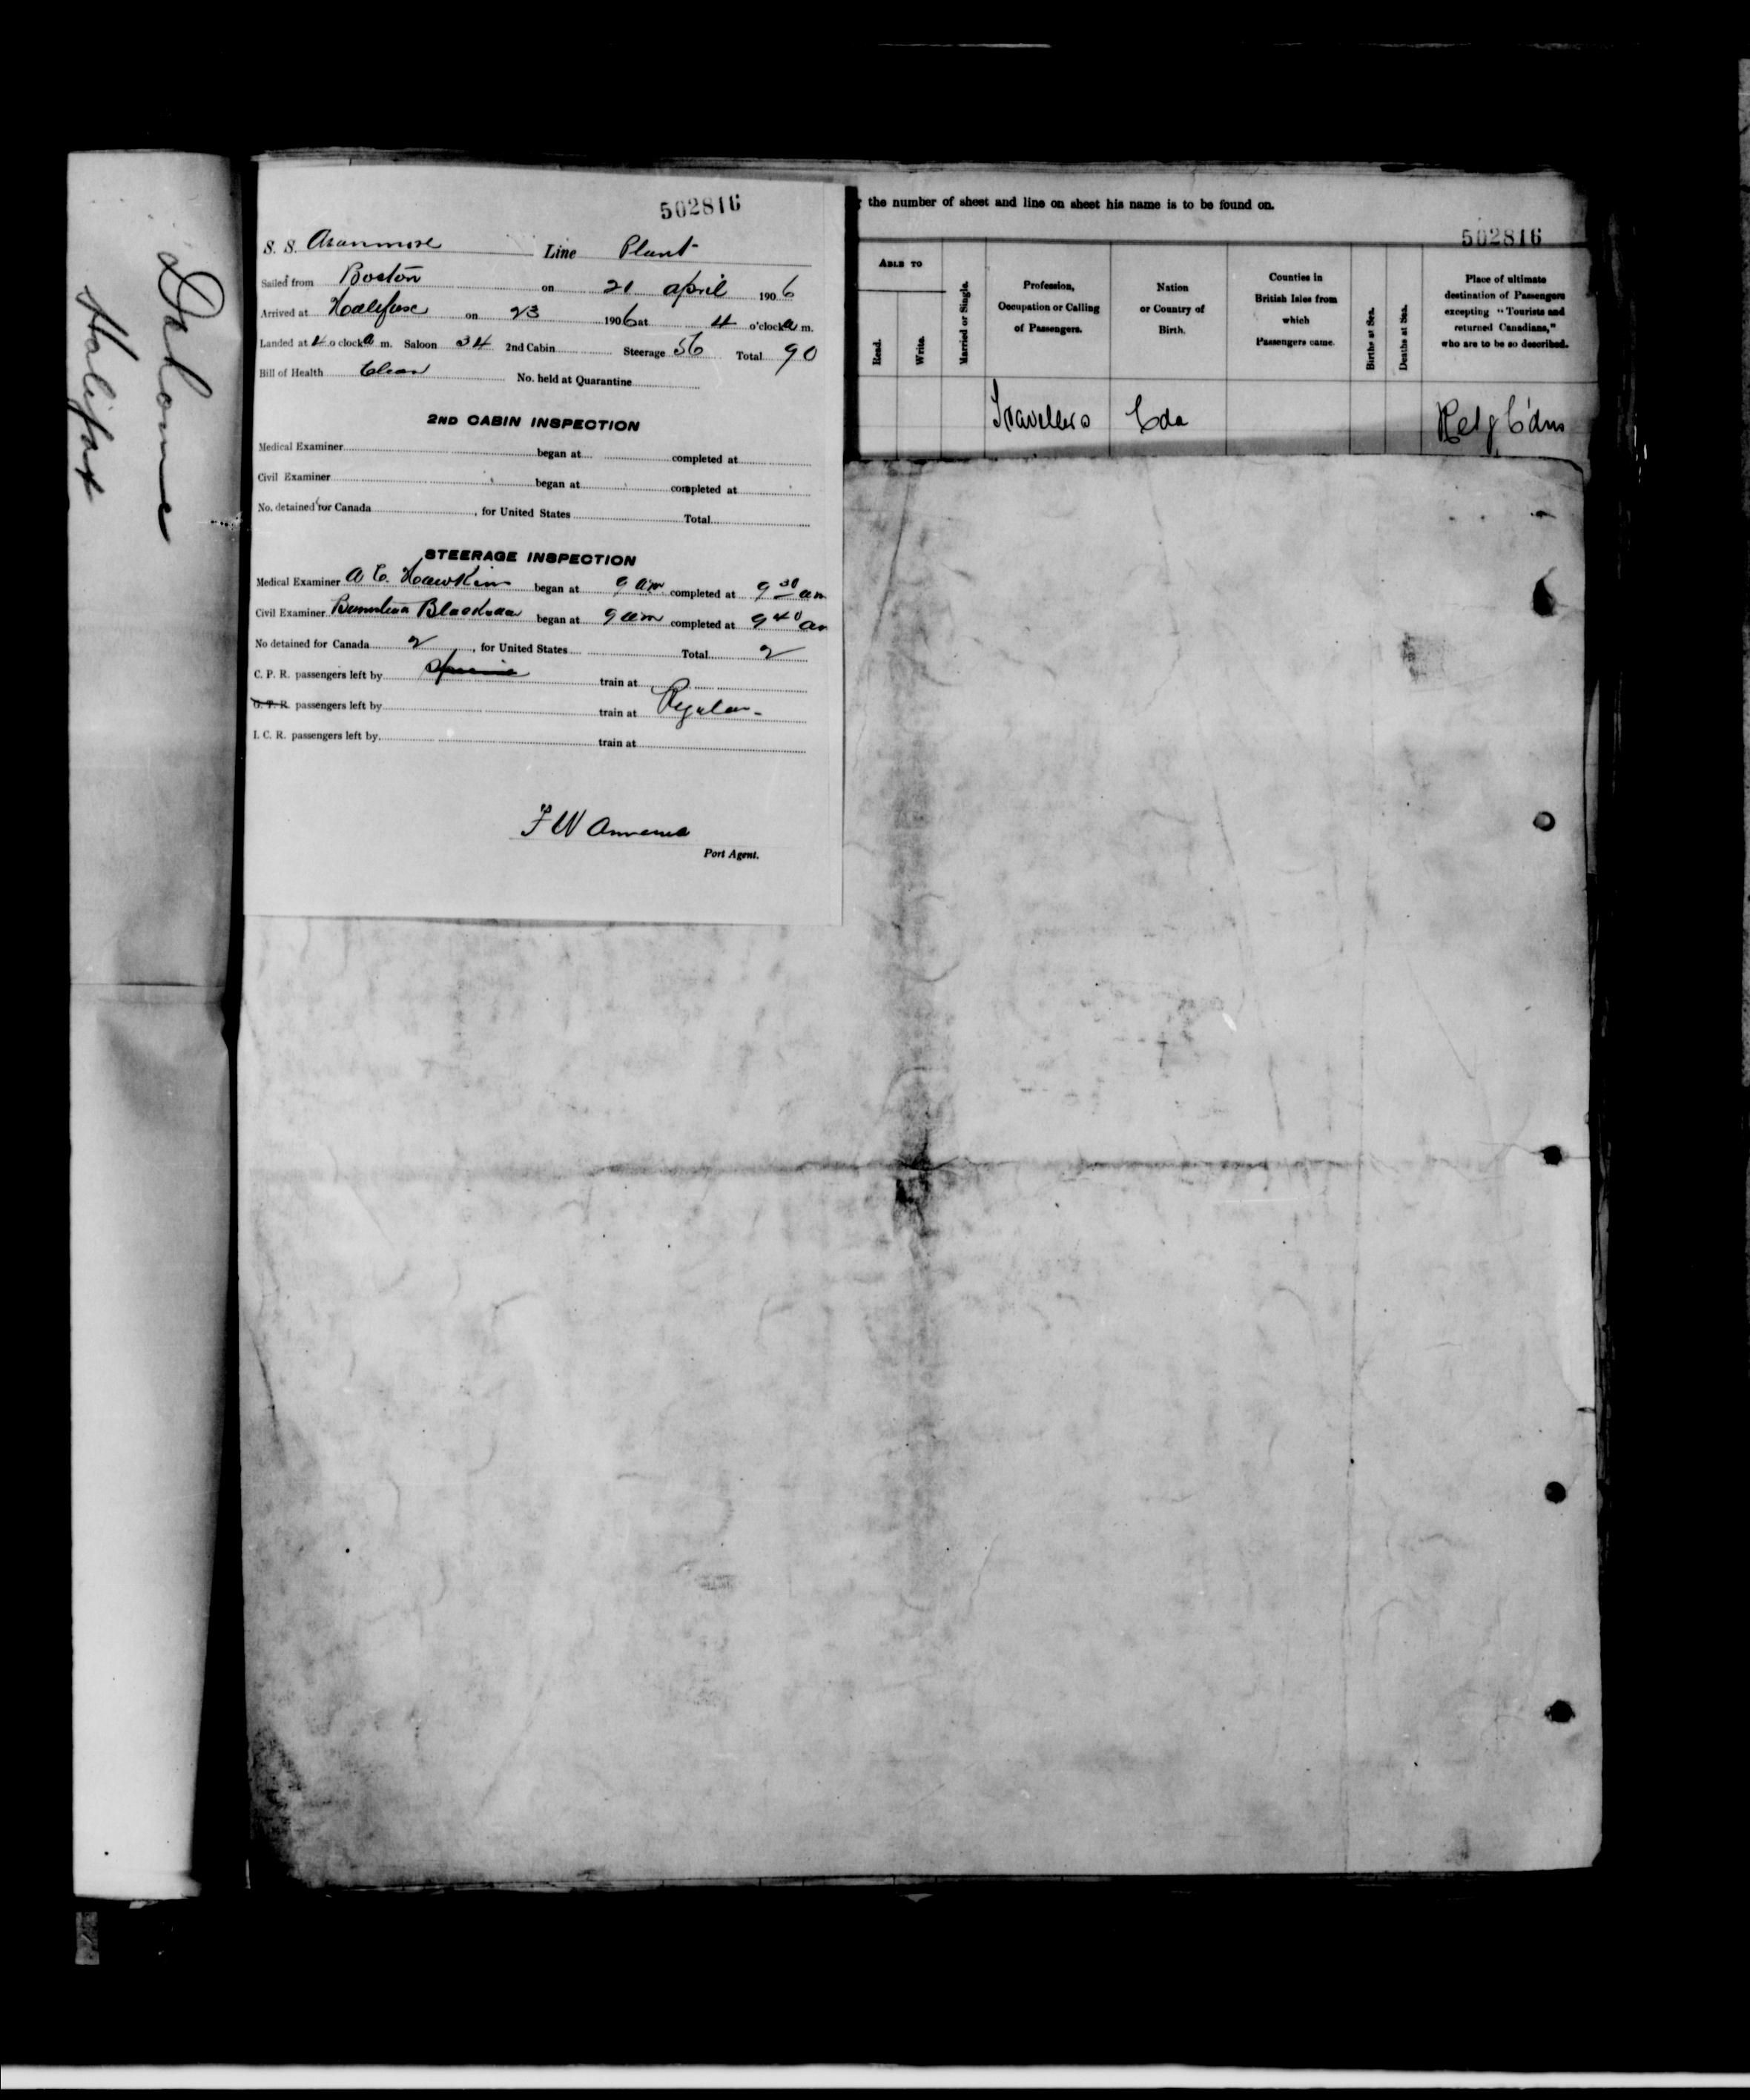 Dahome
Halifax
502816
S. S. Aranmore Line Plant
Sailed from Boston on 21 April 1906
Arrived at Halifax on 23 1906 at 4 o'clock a m.
Landed at 4 o clock a m. Saloon 34 2nd Cabin Steerage 56 Total 90
Bill of Health Clean No. held at Quarantine
2ND CABIN INSPECTION
Medical Examiner began at completed at
Civil Examiner began at completed at
No. detained for Canada , for United States Total
STEERAGE INSPECTION
Medical Examiner began at 9 am completed at 9 30 am
Civil Examiner began at 9 am completed at 9 40 am
No detained for Canada 2 , for United States Total 2
C. P. R. passengers left by train at
G. T. R. passengers left by train at Regular
I. C. R. passengers left by train at
F W Annand
Port Agent.
the number of sheet and line on sheet his name is to be found on.
502816
ABLE TO
Read.
Write.
Married or Single.
Profession,
Occupation or Calling
of Passengers.
Nation
or Country of
Birth.
Counties in
British Isles from
which
Passengers came.
Births at Sea.
Deaths at Sea.
Place of ultimate
destination of Passengers
excepting "Tourists and
returned Canadians,"
who are to be so described.
Travellers Cda Retg C'dns